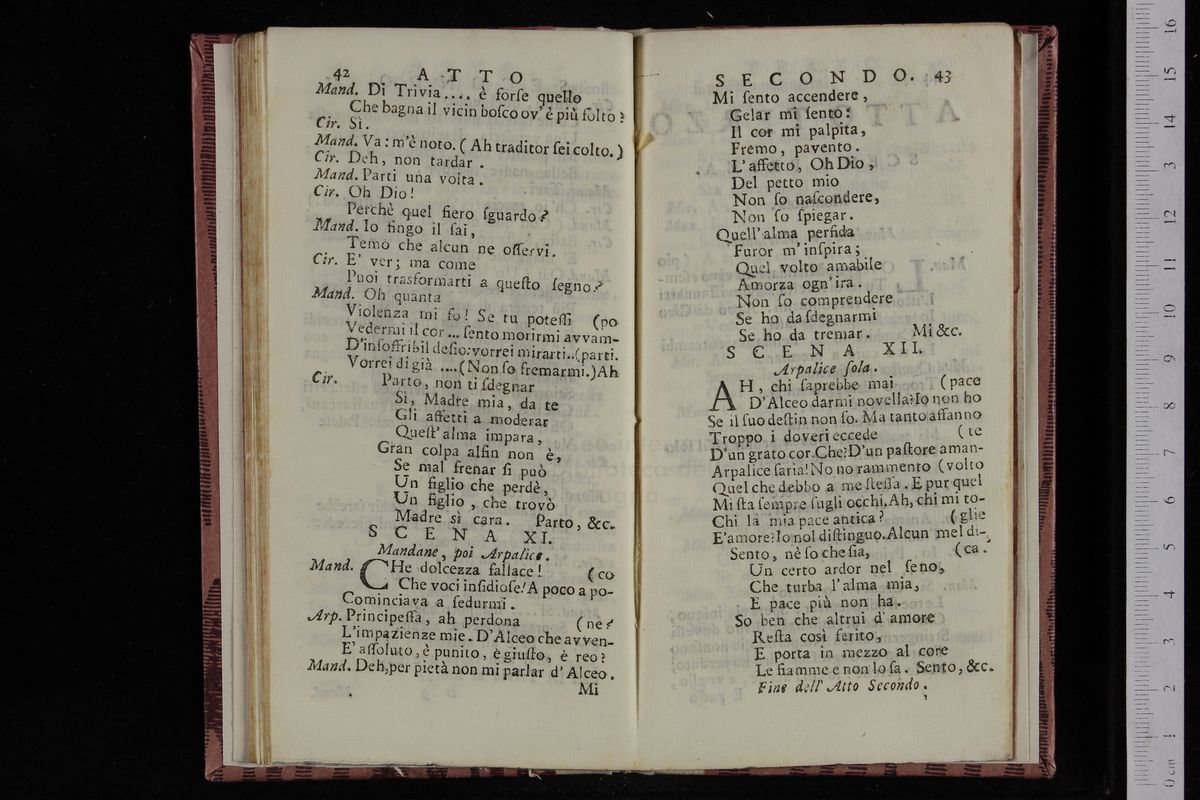 42 A T T O
Mand. Di Trivia.... è forſe quello
Che bagna il vicin boſco ov' è più folto?
Cir. Sì.
Mand. Va: m'è noto. ( Ah traditor ſei colto. )
Cir. Deh, non tardar .
Mand. Parti una volta .
Cir. Oh Dio!
Perchè quel fiero ſguardo?
Mand. Io fingo il ſai,
Temo che alcun ne oſſervi.
Cir. E' ver; ma come
Puoi trasformarti a queſto ſegno?
Mand. Oh quanta
Violenza mi fo! Se tu poteſſi (po
Vedermi il cor... ſento morirmi avvam-
D'inſoffribil deſio: vorrei mirarti..(parti.
Vorrei di già ....(Non ſo fremarmi.)Ah
Cir. Parto, non ti ſdegnar
Sì, Madre mia, da te
Gli affetti a moderar
Queſt' alma impara,
Gran colpa alfin non è,
Se mal frenar ſi può
Un figlio che perdè,
Un figlio, che trovò
Madre sì cara. Parto, &c.
S C E N A XI.
Mandane, poi Arpalice.
Mand. CHe dolcezza fallace! (co
Che voci inſidioſe! A poco a po-
Cominciava a ſedurmi.
Arp. Principeſſa, ah perdona (ne?
L'impazienze mie. D'Alceo che avven-
E' aſſoluto, è punito, è giuſto, è reo?
Mand. Deh, per pietà non mi parlar d' Alceo.
Mi
S E C O N D O. 43
Mi ſento accendere,
Gelar mi ſento:
Il cor mi palpita,
Fremo, pavento.
L'affetto, Oh Dio,
Del petto mio
Non ſo naſcondere,
Non ſo ſpiegar.
Quell' alma perfida
Furor m' inſpira;
Quel volto amabile
Amorza ogn' ira.
Non ſo comprendere
Se ho da ſdegnarmi
Se ho da tremar. Mi &c.
S C E N A XII.
Arpalice ſola.
AH, chi ſaprebbe mai (pace
D'Alceo darmi novella? Io non ho
Se il ſuo deſtin non ſo. Ma tanto affanno
Troppo i doveri eccede (te
D'un grato cor. Che? D'un paſtore aman-
Arpalice ſaria! No no rammento (volto
Quel che debbo a me ſteſſa. E pur quel
Mi ſta ſempre ſugli occhi. Ah, chi mi to-
Chi la mia pace antica? (glie
E'amore? Io nol diſtinguo. Alcun mel di-
Sento, nè ſo che ſia, (ca.
Un certo ardor nel ſeno,
Che turba l'alma mia,
E pace più non ha.
So ben che altrui d' amore
Reſta così ferito,
E porta in mezzo al core
Le fiamme e non lo ſa. Sento, &c.
Fine dell' Atto Secondo.
16
15
14
13
12
11
10
9
8
7
6
5
4
3
2
1
0 cm